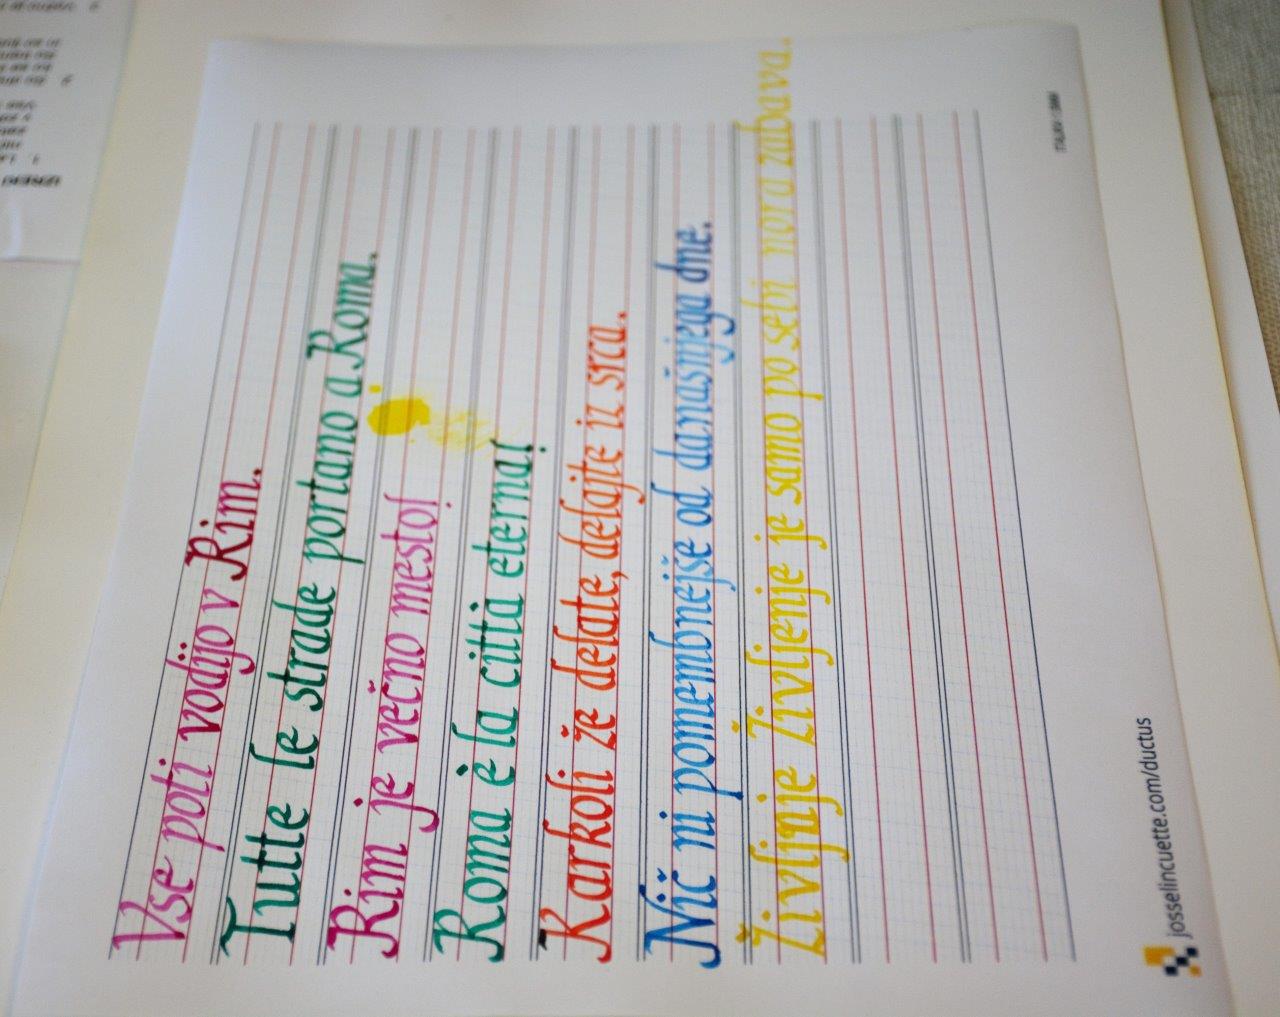 Vse poti vodijo v Rim.
Tutte le strade portano a Roma.
Rim je večno mesto!
Roma è la città eterna!
Karkoli že delate, delajte iz srca.
Nič ni pomembnejše od današnjega dne.
Življnje Življenje je samo po sebi nora zabava.
josselincuette.com/ductus